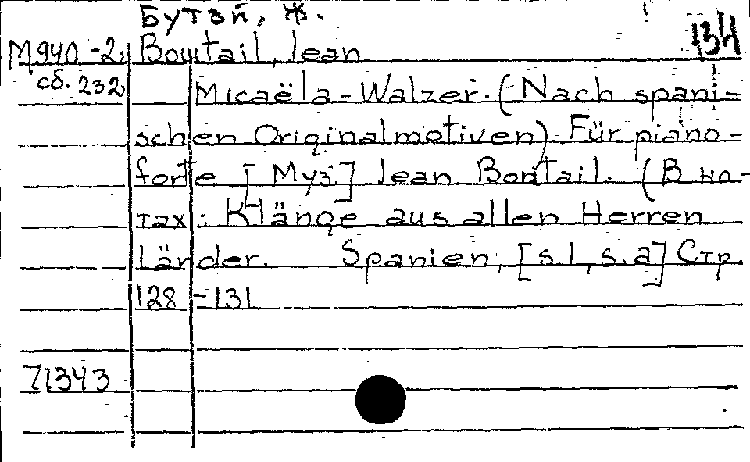 Бутэй, Ж.
134
М940-2 Bowtail, Jean
сб. 232 Micaëla-Walzer. (Nach spani-
schen Originalmotiven). Für piano-
forte [Муз.] Jean Bowtail. (В но-
тах: Klänge aus allen Herren
Länder. Spanien, [s.l, s.a] Стр.
128-131
71343